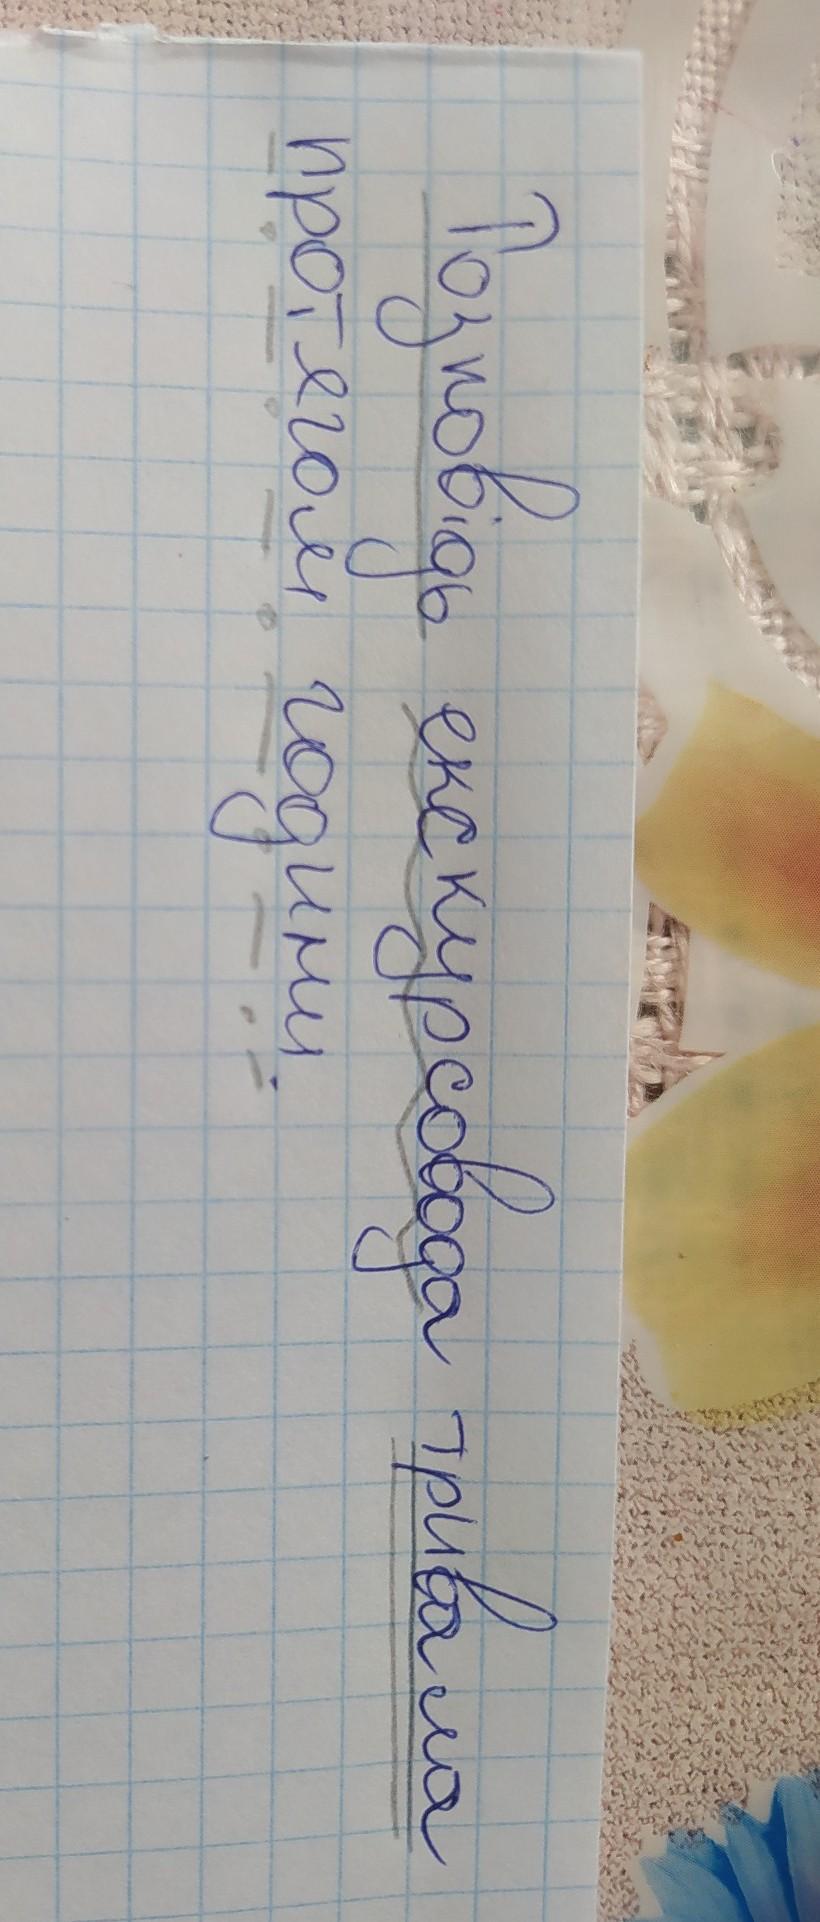 Розповідь екскурсовода тривала
протягом години.